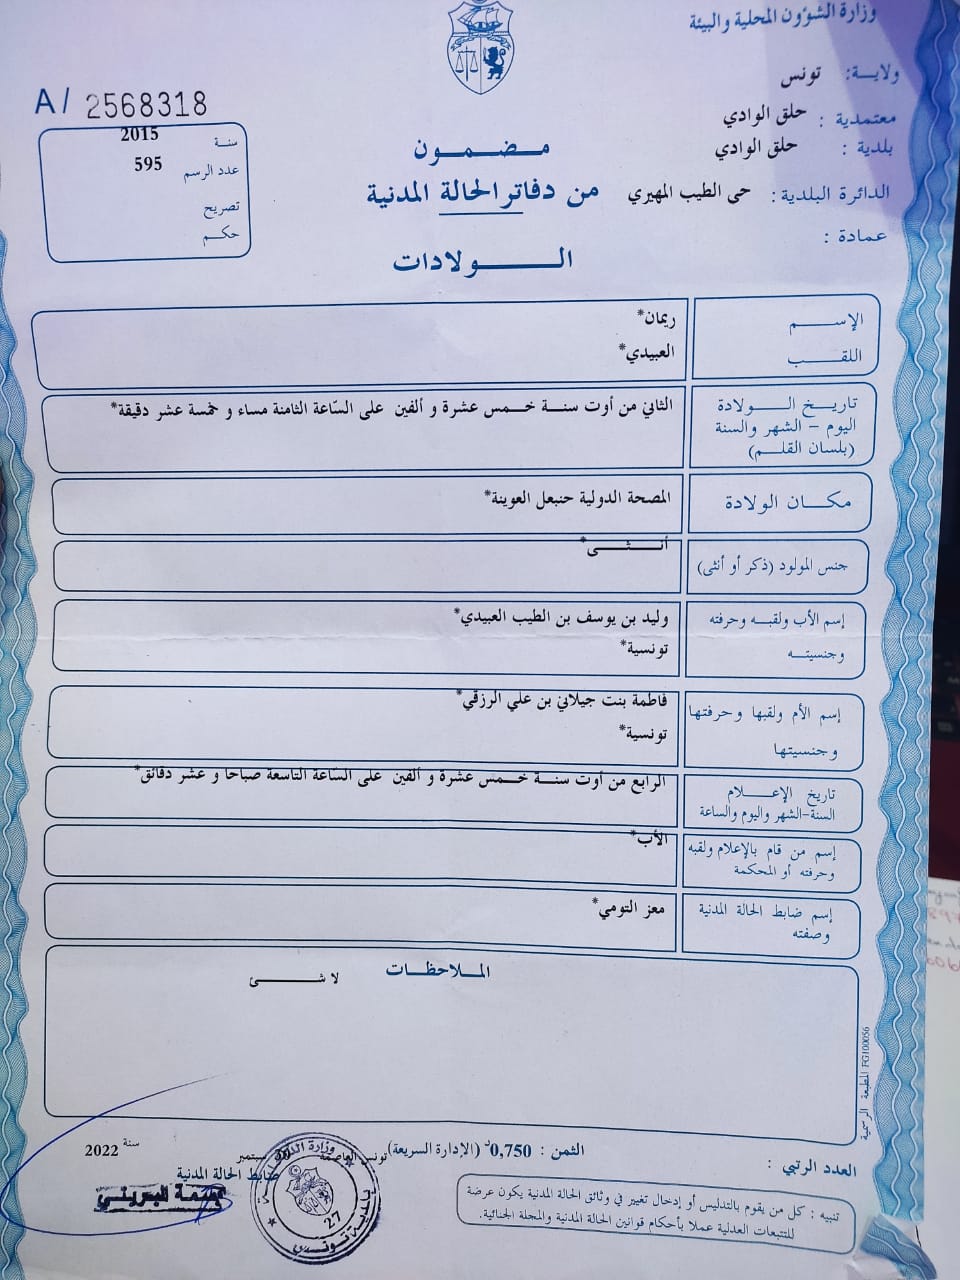 وزارة الشؤون المحلية والبيئة
ولاية: تونس
معتمدية : حلق الوادي
بلدية : حلق الوادي
الدائرة البلدية: حى الطيب المهيري
عمادة :
A/ 2568318
سنة 2015
عدد الرسم 595
تصريح
حكم
مضمون
من دفاتر الحالة المدنية
الولادات
الإسم ريمان*
اللقب العبيدي*
تاريخ الولادة
اليوم - الشهر والسنة
(بلسان القلم)
الثاني من أوت سنة خمس عشرة و ألفين على الساعة الثامنة مساء و خمسة عشر دقيقة*
مكان الولادة المصحة الدولية حنبعل العوينة*
جنس المولود (ذكر أو أنثى) أنثى*
إسم الأب ولقبه وحرفته وليد بن يوسف بن الطيب العبيدي*
وجنسيته تونسية*
إسم الأم ولقبها وحرفتها فاطمة بنت جيلاني بن علي الرزقي*
وجنسيتها تونسية*
تاريخ الإعلام
السنة-الشهر واليوم والساعة
الرابع من أوت سنة خمس عشرة و ألفين على الساعة التاسعة صباحا و عشر دقائق*
إسم من قام بالإعلام ولقبه
وحرفته أو المحكمة
الأب*
إسم ضابط الحالة المدنية
وصفته
معز التومي*
الملاحظات
لا شئ
المطبعة الرسمية FG100056
العدد الرتبي :
الثمن : 0,750د (الإدارة السريعة)
تونس العاصمة سبتمبر سنة 2022
ضابط الحالة المدنية
بلدية تونس
27
تنبيه : كل من يقوم بالتدليس أو إدخال تغيير في وثائق الحالة المدنية يكون عرضة
للتتبعات العدلية عملا بأحكام قوانين الحالة المدنية والمجلة الجنائية.